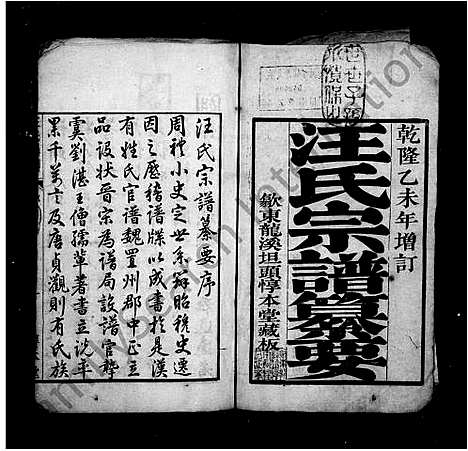 乾隆乙未年增訂
汪氏宗譜纂要
歙東龍溪坦頭惇本堂藏板
汪氏宗譜纂要序
周禮小史定世系辨昭穆史遷
因之歷稽譜牒以成書於是漢
有姓氏官譜魏置州郡中正立
品設狀晉宗為譜局設譜官摯
虞劉湛王僧孺華著書立說平
累千万言及唐貞觀則有氏族